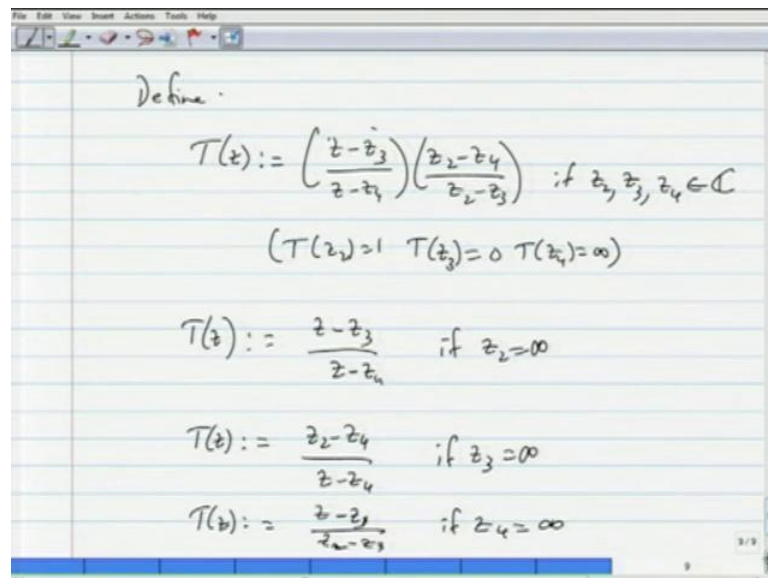 File Edit View Insert Actions Tools Help
Define.
T(z) := ((z-z_3)/(z-z_4)) ((z_2-z_4)/(z_2-z_3)) if z_2, z_3, z_4 ∈ ℂ
(T(z_2)=1 T(z_3)=0 T(z_4)=∞)
T(z) := (z-z_3)/(z-z_4) if z_2=∞
T(z) := (z_2-z_4)/(z-z_4) if z_3=∞
T(z) := (z-z_3)/(z_2-z_3) if z_4=∞
9/9
9